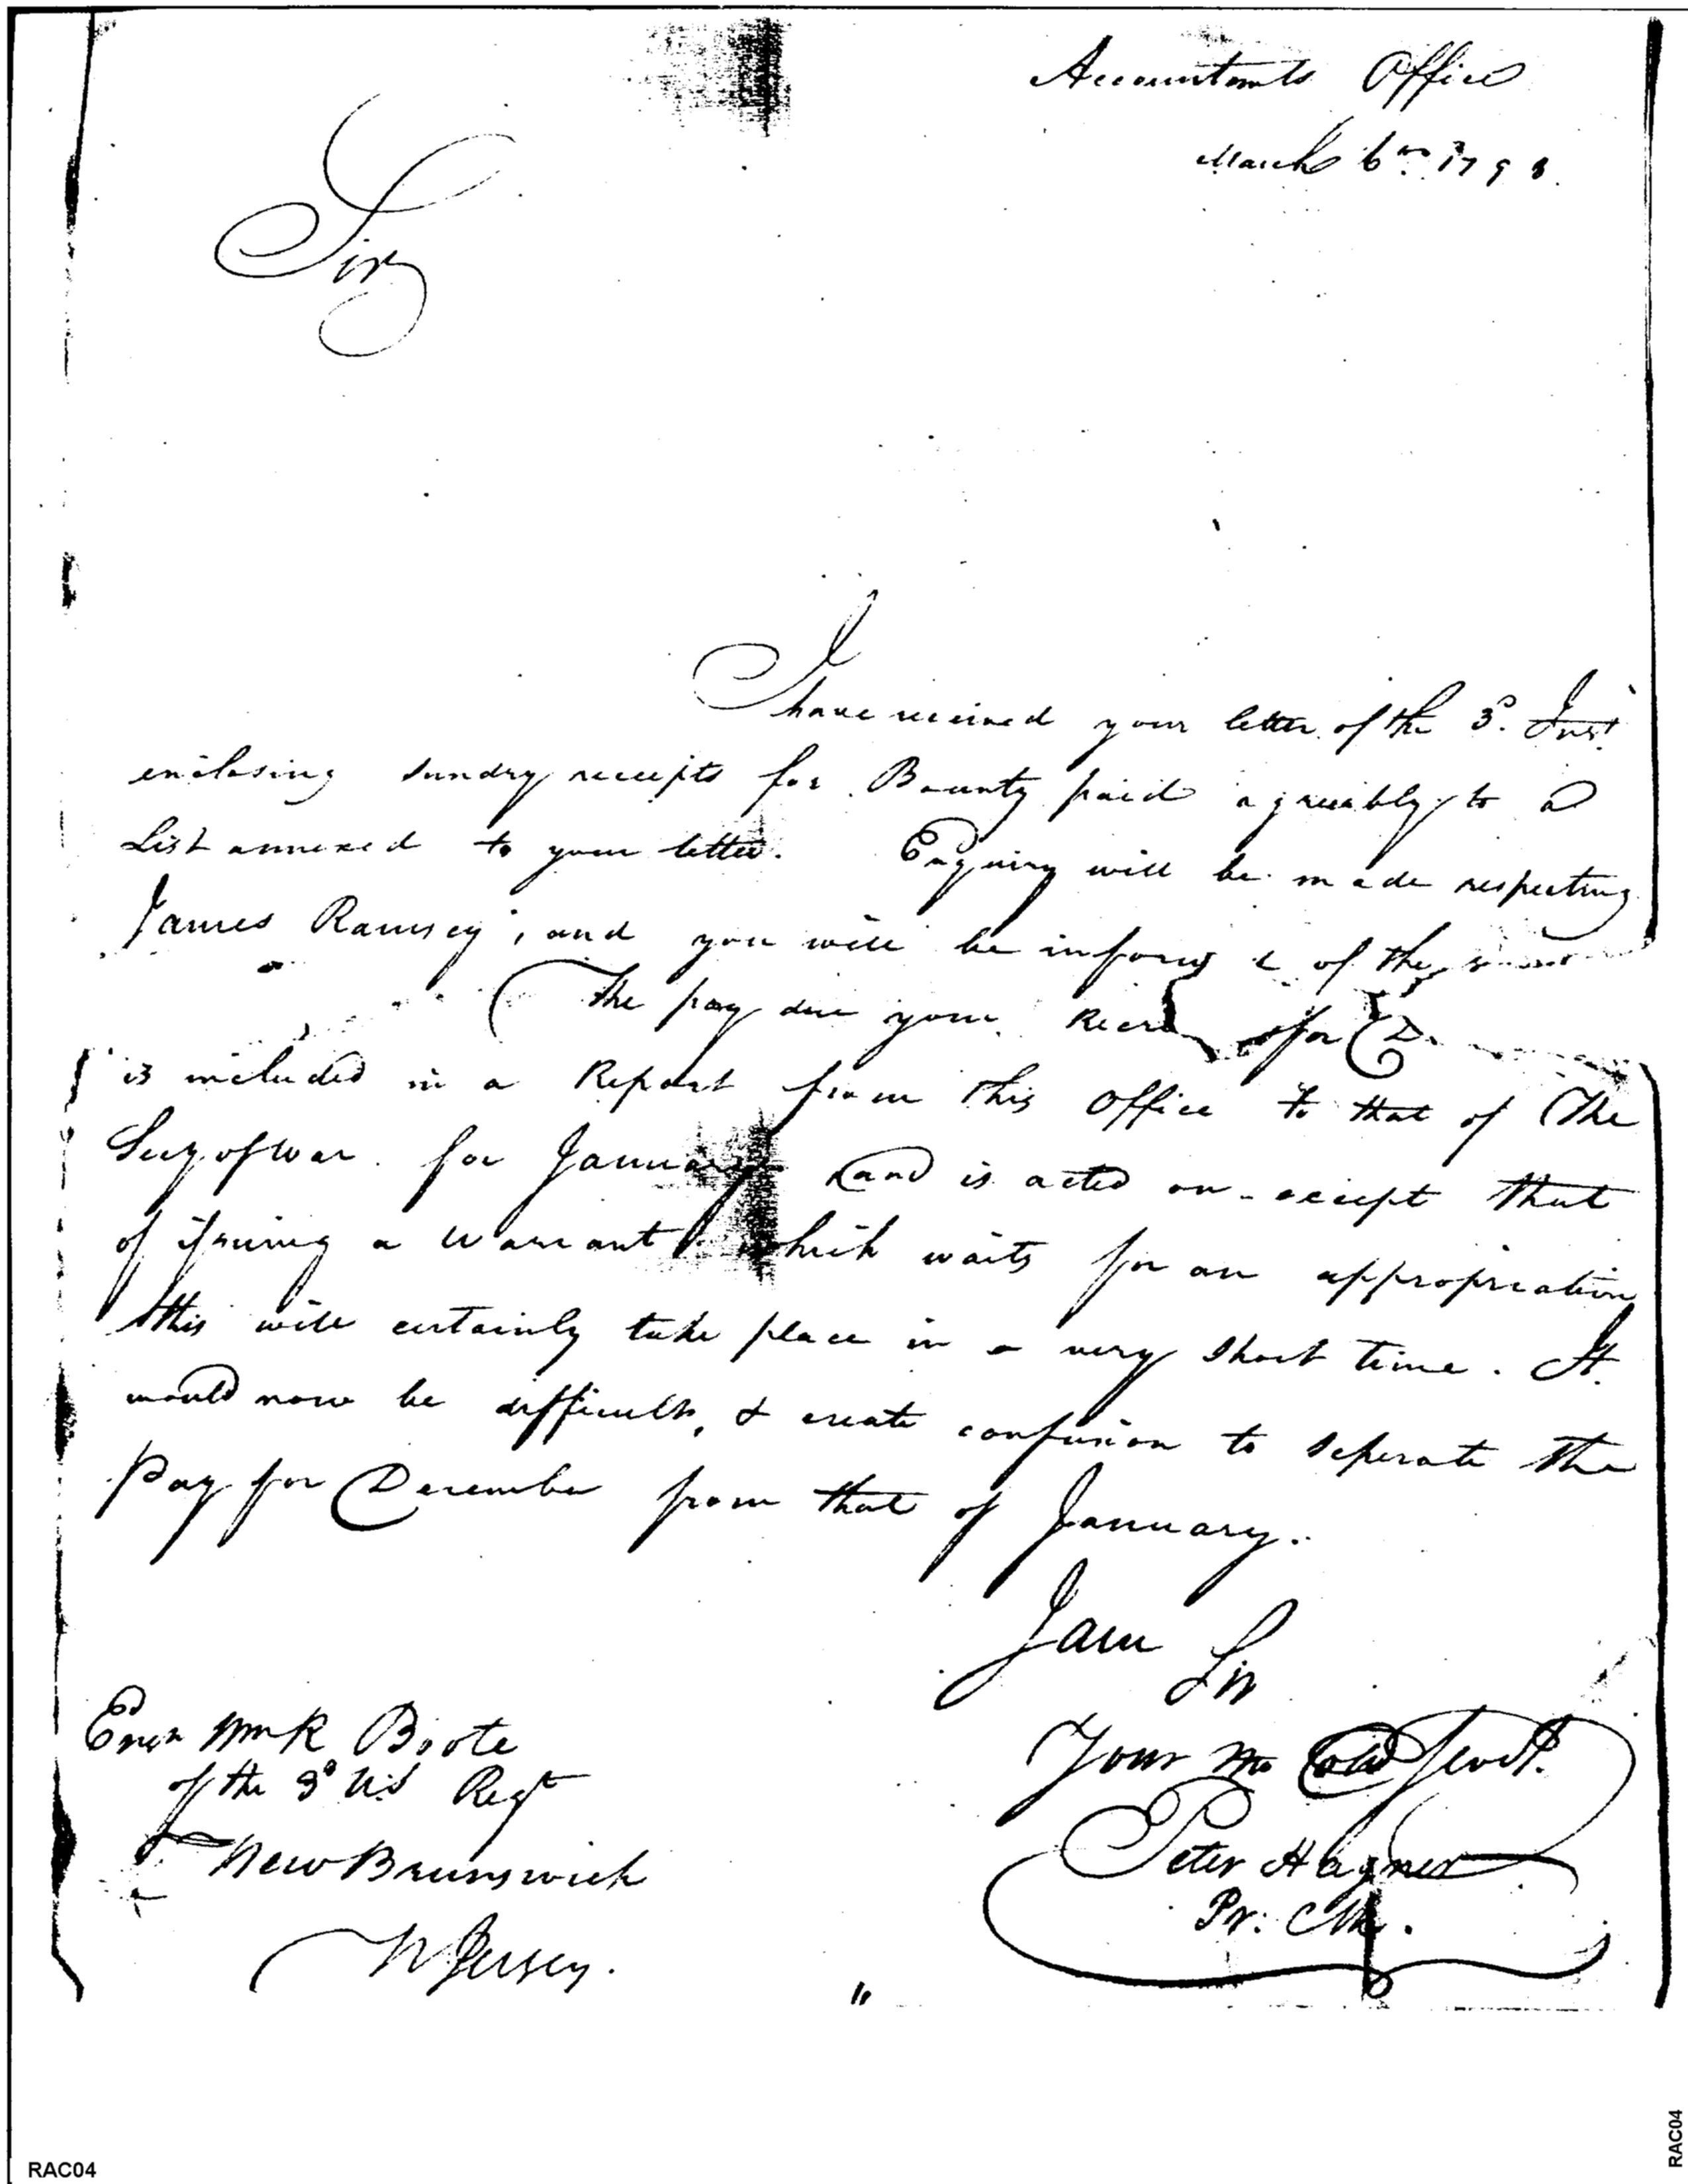 Accountants Office
March 6th 1798.
Sir
I
have received your letter of the 3d. Inst.
enclosing sundry receipts for Bounty paid agreeibly to a
List annexed to your letter. Enquiry will be made respecting
James Ramsey, and you will be informed of the
The pay due your for
is included in a Report from this Office to that of The
Secy of War for January and is acted on - except that
of issuing a Warrant which waits for an appropriation
this will certainly take place in a very short time. It
would now be difficult, & create confusion to seperate the
Pay for December from that of January.
I am Sir
Your Mo Obt Servt.
Peter Hagner
Pr: Clk.
Ensn Wm R Boote
of the 3d US Regt
New Brunswick
N Jersey.
RAC04
RAC04